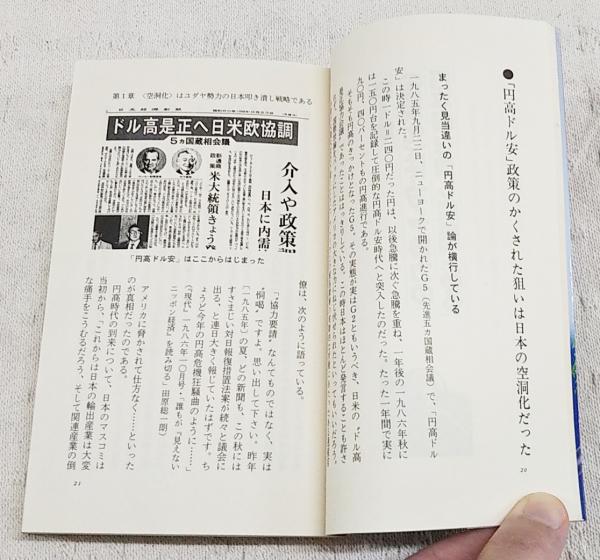 ●「円高ドル安」政策のかくされた狙いは日本の空洞化だった
まったく見当違いの「円高ドル安」論が横行している
一九八五年九月二二日、ニューヨークで開かれたG5（先進五カ国蔵相会議）で、「円高ドル
安」は決定された。
この時一ドル＝二四〇円だった円は、以後急騰に次ぐ急騰を重ね、一年後の一九八六年秋に
は一五〇円台を記録して圧倒的な円高ドル安時代へと突入したのだった。たった一年間で実に
九〇円、四〇パーセントもの円高進行である。
そもそも円高のきっかけとなったG5。その実態が実はG2ともいうべき、日米の“ドル高
であったことははっきりしている。この時日本はほとんど発言することも許さ
20
第1章 〈空洞化〉はユダヤ勢力の日本叩き潰し戦略である
日本経済新聞
ドル高是正へ日米欧協調
5カ国蔵相会議
介入や政策
日本に内需
新通商政策
米大統領きょう
「円高ドル安」はここからはじまった
僚は、次のように語っている。
「“協力要請”なんてものではなく、実は
“恫喝”ですよ。思い出して下さい。昨年
〔一九八五年〕の夏、どの新聞も、この秋には
すさまじい対日報復措置法案が続々と議会に
出る、と連日大きく報じていたはずです。ち
ょうど今年の円高危機狂騒曲のように……」
（『現代』一九八六年一〇月号・「誰もが『見えない
ニッポン経済』を読み切る」田原総一朗）
アメリカに脅かされて仕方なく……といった
のが真相だったのである。
円高時代の到来について、日本のマスコミは
当初から、「これからは日本の輸出産業は大変
な痛手をこうむるだろう、そして関連産業の倒
21